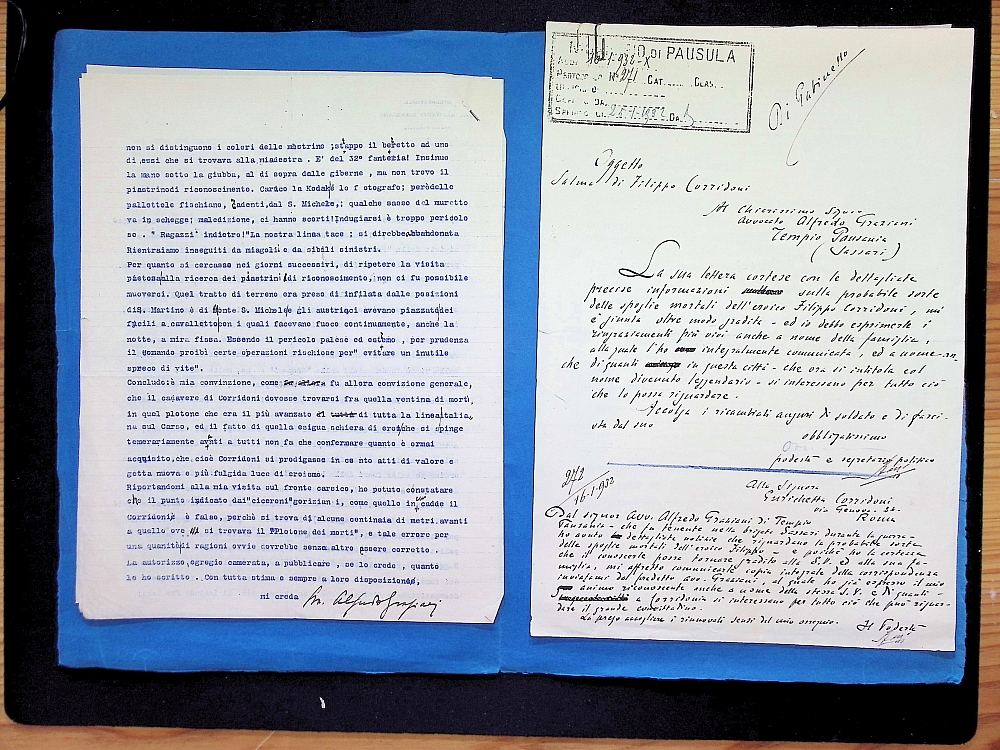 non si distinguono i colori delle mostrine ;stappo il beretto ad uno
di essi che si trovava alla miadestra . E' del 32° fanteria! Insinuo
la mano sotto la giubba, al di sopra dalle giberne , ma non trovo il
piastrinodi riconoscimento. Carico la Kodak lo f otografo; perèdelle
pallottole fischiano, cadenti,dal S. Michele,; qualche sasso del muretto
va in schegge; maledizione, ci hanno scorti!Indugiarsi è troppo pericolo
so . " Ragazzi indietro!"La nostra linea tace ; si direbbe abbandonata
Rientraimo inseguiti da miagoli e da sibili sinistri.
Per quanto si cercasse nei giorni successivi, di ripetere la visita
pietosa alla ricerca dei piastrini di riconoscimento, non ci fu possibile
muoverci. Quel tratto di terreno era preso di infilata dalle posizioni
di S. Martino è di Monte S. Michele gli austriaci avevano piazzato dei
fucili a cavalletto con i quali facevano fuoco continuamente, anche la
notte, a mira fissa. Essendo il pericolo palese ed esteno , per prudenza
il Comando proibì certe operazioni rischiose per" evitare un inutile
spreco di vite".
Concludo:è mia convinzione, come fu allora convizione generale,
che il cadavere di Corridoni dovesse trovarsi fra quella ventina di morti,
in quel plotone che era il più avanzato di tutta la linea italia,
na sul Carso, ed il fatto di quella esigua schiera di eroi che si spinge
temerariamente avnti a tutti non fa che confermare quanto è ormai
acquisito,che cioè Corridoni si prodigasse in ce nto atti di valore e
getta nuova e più fulgida luce di eroismo.
Riportandomi alla mia visita sul fronte carsico, ho potuto constatare
che il punto indicato dai"ciceroni"goriziani , come quello in cui cadde il
Corridoni è falso, perchè si trova di alcune centinaia di metri avanti
a quello ove si trovava il "Plotone dei morti", e tale errore per
una quantità di ragioni ovvie dovrebbe senza altro essere corretto .
La autorizzo,egregio camerata, a pubblicare , se lo crede , quanto
le ho scritto . Con tutta stima e sempre a loro disposizione,
mi creda Avv. Alfredo Graziani
DI PAUSULA
16-1-932-X
N° 271 CAT. CLAS.
25-1-1932
Di Gabinetto
Oggetto
Salma di Filippo Corridoni
Al Chiarissimo Signor
Avvocato Alfredo Graziani
Tempio Pausania
(Sassari)
La sua lettera cortese con le dettagliate
precise informazioni sulla probabile sorte
delle spoglie mortali dell'eroico Filippo Corridoni, mi
è giunta oltre modo gradita - ed io debbo esprimerle i
ringraziamenti più vivi anche a nome della famiglia,
alla quale l'ho integralmente comunicata, ed a nome an
che di quanti in questa città - che ora si intitola col
nome divenuto leggendario - si interessano per tutto ciò
che lo possa riguardare.
Accolga i ricambiati auguri di soldato e di fasci-
sta dal suo
obbligatissimo
podestà e segretario politico
272
16-1-932
Alla Signora
Enrichetta Corridoni
via Genova 30
Roma
Dal signor Avv. Alfredo Graziani di Tempio
Pausania - che fu tenente nella brigata Sassari durante la guerra -
ho avuto dettagliate notizie che riguardano la probabile sorte
delle spoglie mortali dell'eroico Filippo - e poichè ho la certezza
che il conoscerle possa tornare gradito alla S.V. ed alla sua fa-
miglia, mi affretto comunicarle copia integrale della corrispondenza
inviatami dal predetto avv. Graziani, al quale ho già espresso il mio
animo riconoscente anche a nome della stessa S.V. e di quanti -
a Corridonia si interessano per tutto ciò che può riguar-
dare il grande concittadino.
La prego accogliere i rinnovati sensi del mio ossequio.
Il Podestà